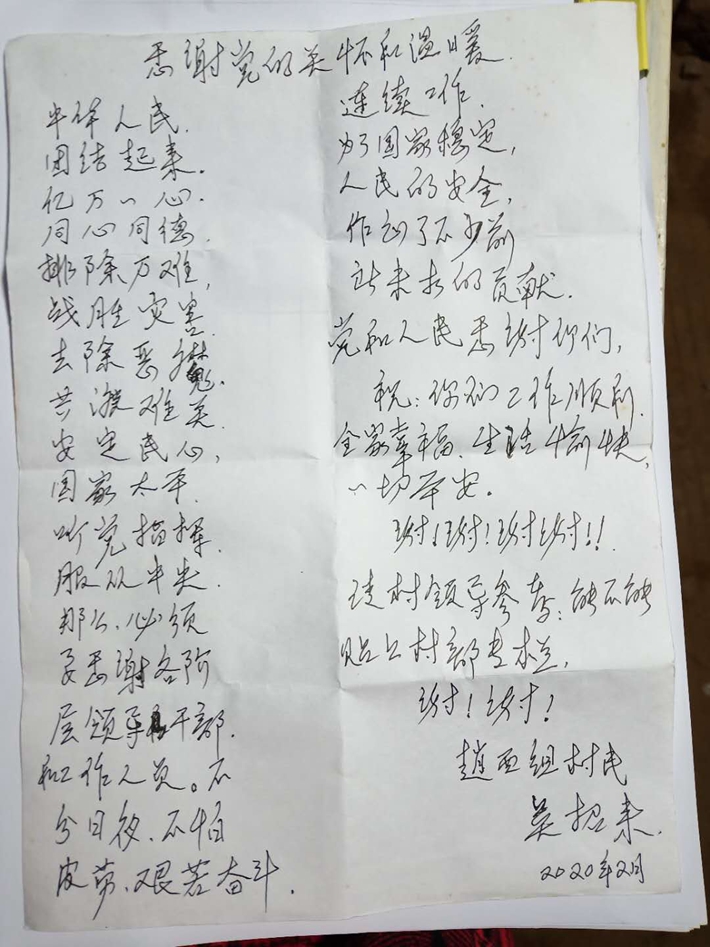 感谢党的关怀和温暖.
中华人民.
团结起来.
亿万一心.
同心同德.
排除万难,
战胜灾害.
去除恶魔.
共渡难关
安定民心,
国家太平.
听党指挥
服从中央.
那么、必须
要感谢各阶
层领导和干部.
和工作人员。不
分日夜、不怕
疲劳、艰苦奋斗.
连续工作.
为了国家稳定,
人民的安全,
作出了不少前
所未有的贡献.
党和人民感谢你们,
祝:你们工作顺利.
全家幸福、生活愉快,
一切平安。
谢!谢!谢谢!!
请村领导参考:能不能
贴上村部专栏,
谢!谢!
赵西组村民
吴招来.
2020年2月